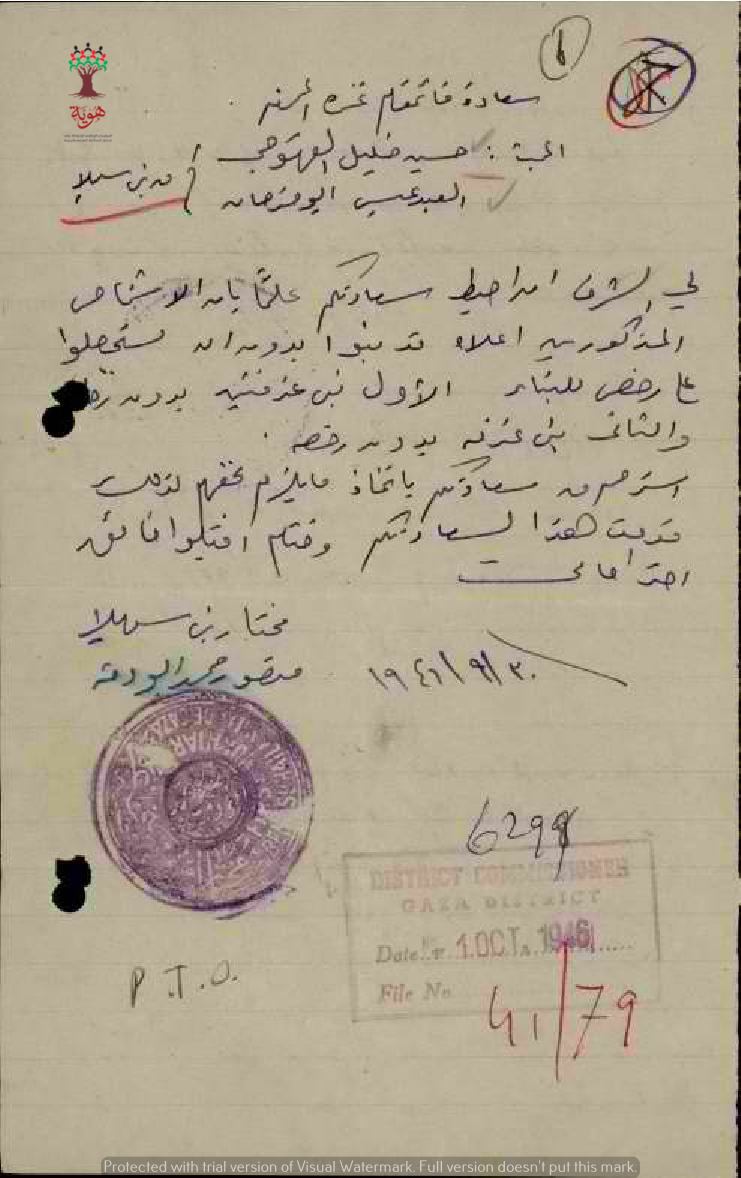 هوية
سعادة قائمقام غزه المحترم
حسين خليل القهوجي
من بني سهيلا
لي الشرف ان احيط سعادتكم علمًا بان الاشخاص
المذكورين اعلاه قد بنوا بدون ان يستحصلوا
على رخص للبناء الأول بنى غرفتين بدون
والثاني بنى غرفه بدون رخصه .
استرحم من سعادتكم باتخاذ ما يلزم بحقهم لذلك
قدمت هذا لسعادتكم وختام اقبلوا فائق
احتراماتي
مختار بني سهيلا
منصور
١٩٤٦/٩/٣٠
6299
DISTRICT COMMISSIONER
GAZA DISTRICT
Date 1 OCT. 1946
File No
41/79
P.T.O.
Protected with trial version of Visual Watermark. Full version doesn't put this mark.